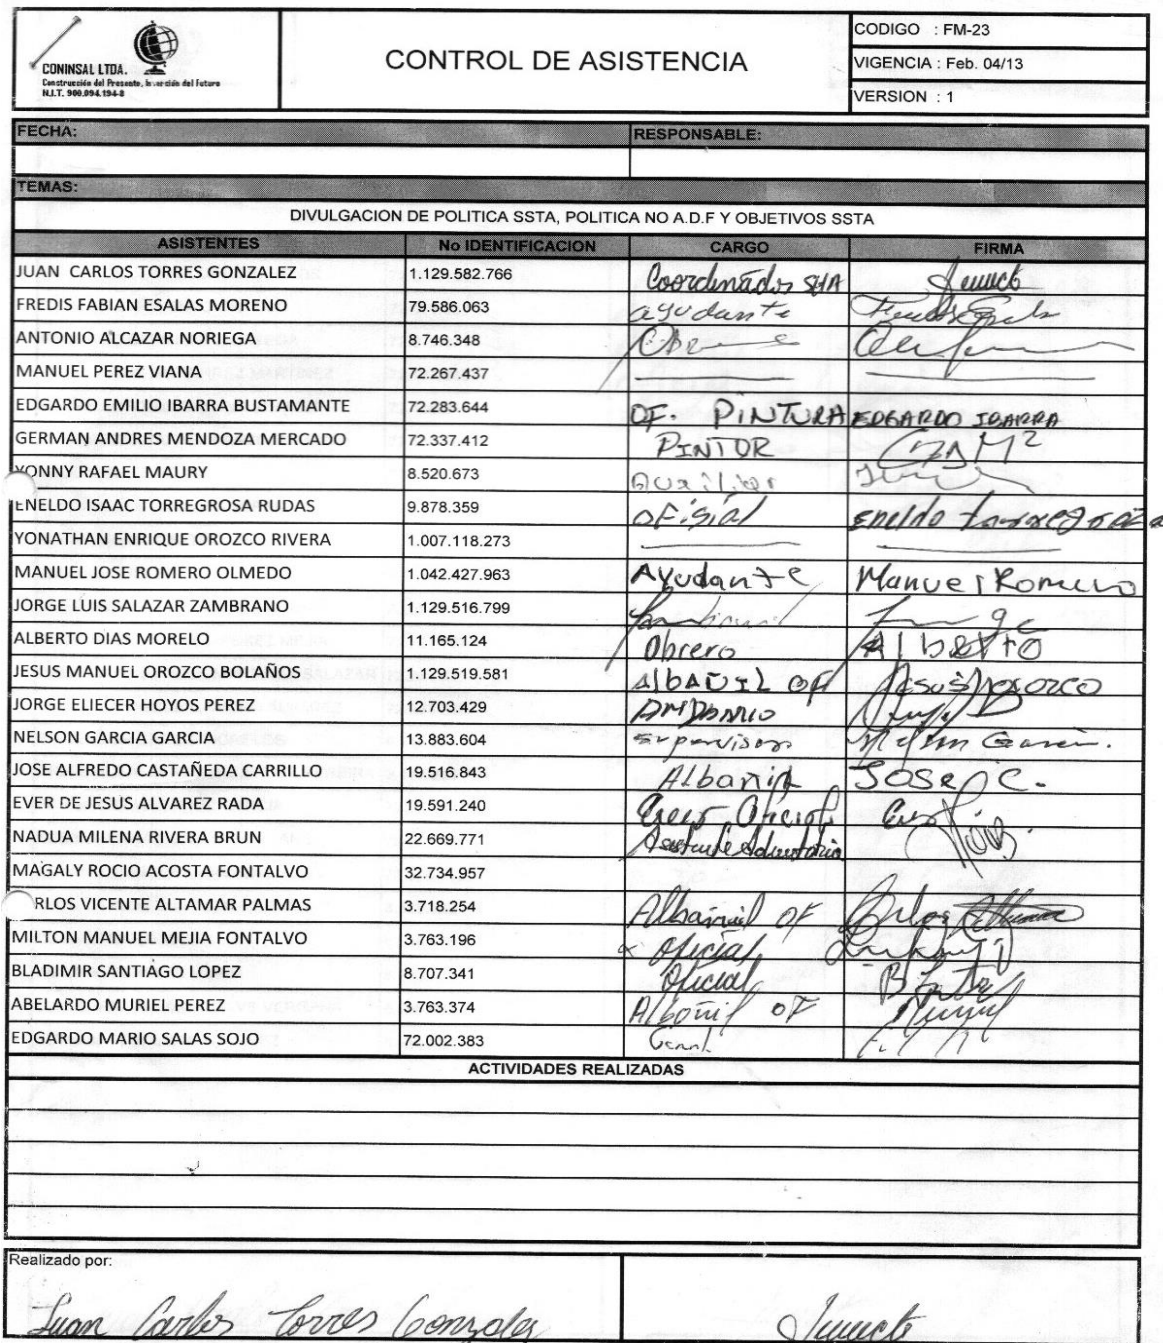 CONINSAL LTDA.
Construcción del Presente, Inversión del Futuro
N.I.T. 900.094.194-8
CONTROL DE ASISTENCIA
CODIGO : FM-23
VIGENCIA : Feb. 04/13
VERSION : 1
FECHA: RESPONSABLE:
TEMAS:
DIVULGACION DE POLITICA SSTA, POLITICA NO A.D.F Y OBJETIVOS SSTA
ASISTENTES No IDENTIFICACION CARGO FIRMA
JUAN CARLOS TORRES GONZALEZ 1.129.582.766 Coordinador
FREDIS FABIAN ESALAS MORENO 79.586.063 ayudante
ANTONIO ALCAZAR NORIEGA 8.746.348
MANUEL PEREZ VIANA 72.267.437
EDGARDO EMILIO IBARRA BUSTAMANTE 72.283.644 OF. PINTURA EDGARDO IBARRA
GERMAN ANDRES MENDOZA MERCADO 72.337.412 PINTOR
YONNY RAFAEL MAURY 8.520.673 Auxiliar
ENELDO ISAAC TORREGROSA RUDAS 9.878.359 oFisial Eneldo
YONATHAN ENRIQUE OROZCO RIVERA 1.007.118.273
MANUEL JOSE ROMERO OLMEDO 1.042.427.963 Ayudante Manuel Romero
JORGE LUIS SALAZAR ZAMBRANO 1.129.516.799
ALBERTO DIAS MORELO 11.165.124 Obrero AlbeRto
JESUS MANUEL OROZCO BOLAÑOS 1.129.519.581 AlbAÑIL OF Jesus Orozco
JORGE ELIECER HOYOS PEREZ 12.703.429
NELSON GARCIA GARCIA 13.883.604 supervisor Nelson Garcia.
JOSE ALFREDO CASTAÑEDA CARRILLO 19.516.843 Albañil JOSE C.
EVER DE JESUS ALVAREZ RADA 19.591.240 Oficial Ever
NADUA MILENA RIVERA BRUN 22.669.771 Asistente
MAGALY ROCIO ACOSTA FONTALVO 32.734.957
RLOS VICENTE ALTAMAR PALMAS 3.718.254 Albañil OF Carlos Altamar
MILTON MANUEL MEJIA FONTALVO 3.763.196 Oficial
BLADIMIR SANTIAGO LOPEZ 8.707.341 Oficial
ABELARDO MURIEL PEREZ 3.763.374 Albañil OF
EDGARDO MARIO SALAS SOJO 72.002.383
ACTIVIDADES REALIZADAS
Realizado por:
Juan Carlos Torres Gonzalez